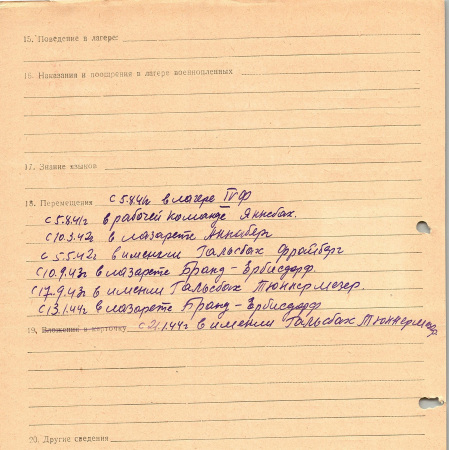 15. Поведение в лагере:
16. Наказания и поощрения в лагере военнопленных
17. Знание языков
18. Перемещения с 5.8.41г в лагере IVФ
с 5.8.41г в рабочей команде Яннсбах.
с 10.3.42г в лазарете Аннаберг
с 5.5.42г в имении Гальсбах Фрайберг
с 10.9.43г в лазарете Бранд-Эрбисдорф.
с 17.9.43г в имении Гальсбах Тюннермезер.
с 13.1.44г в лазарете Бранд-Эрбисдорф
19. Вложения в карточку с 21.1.44г в имении Гальсбах Тюннермезер
20. Другие сведения